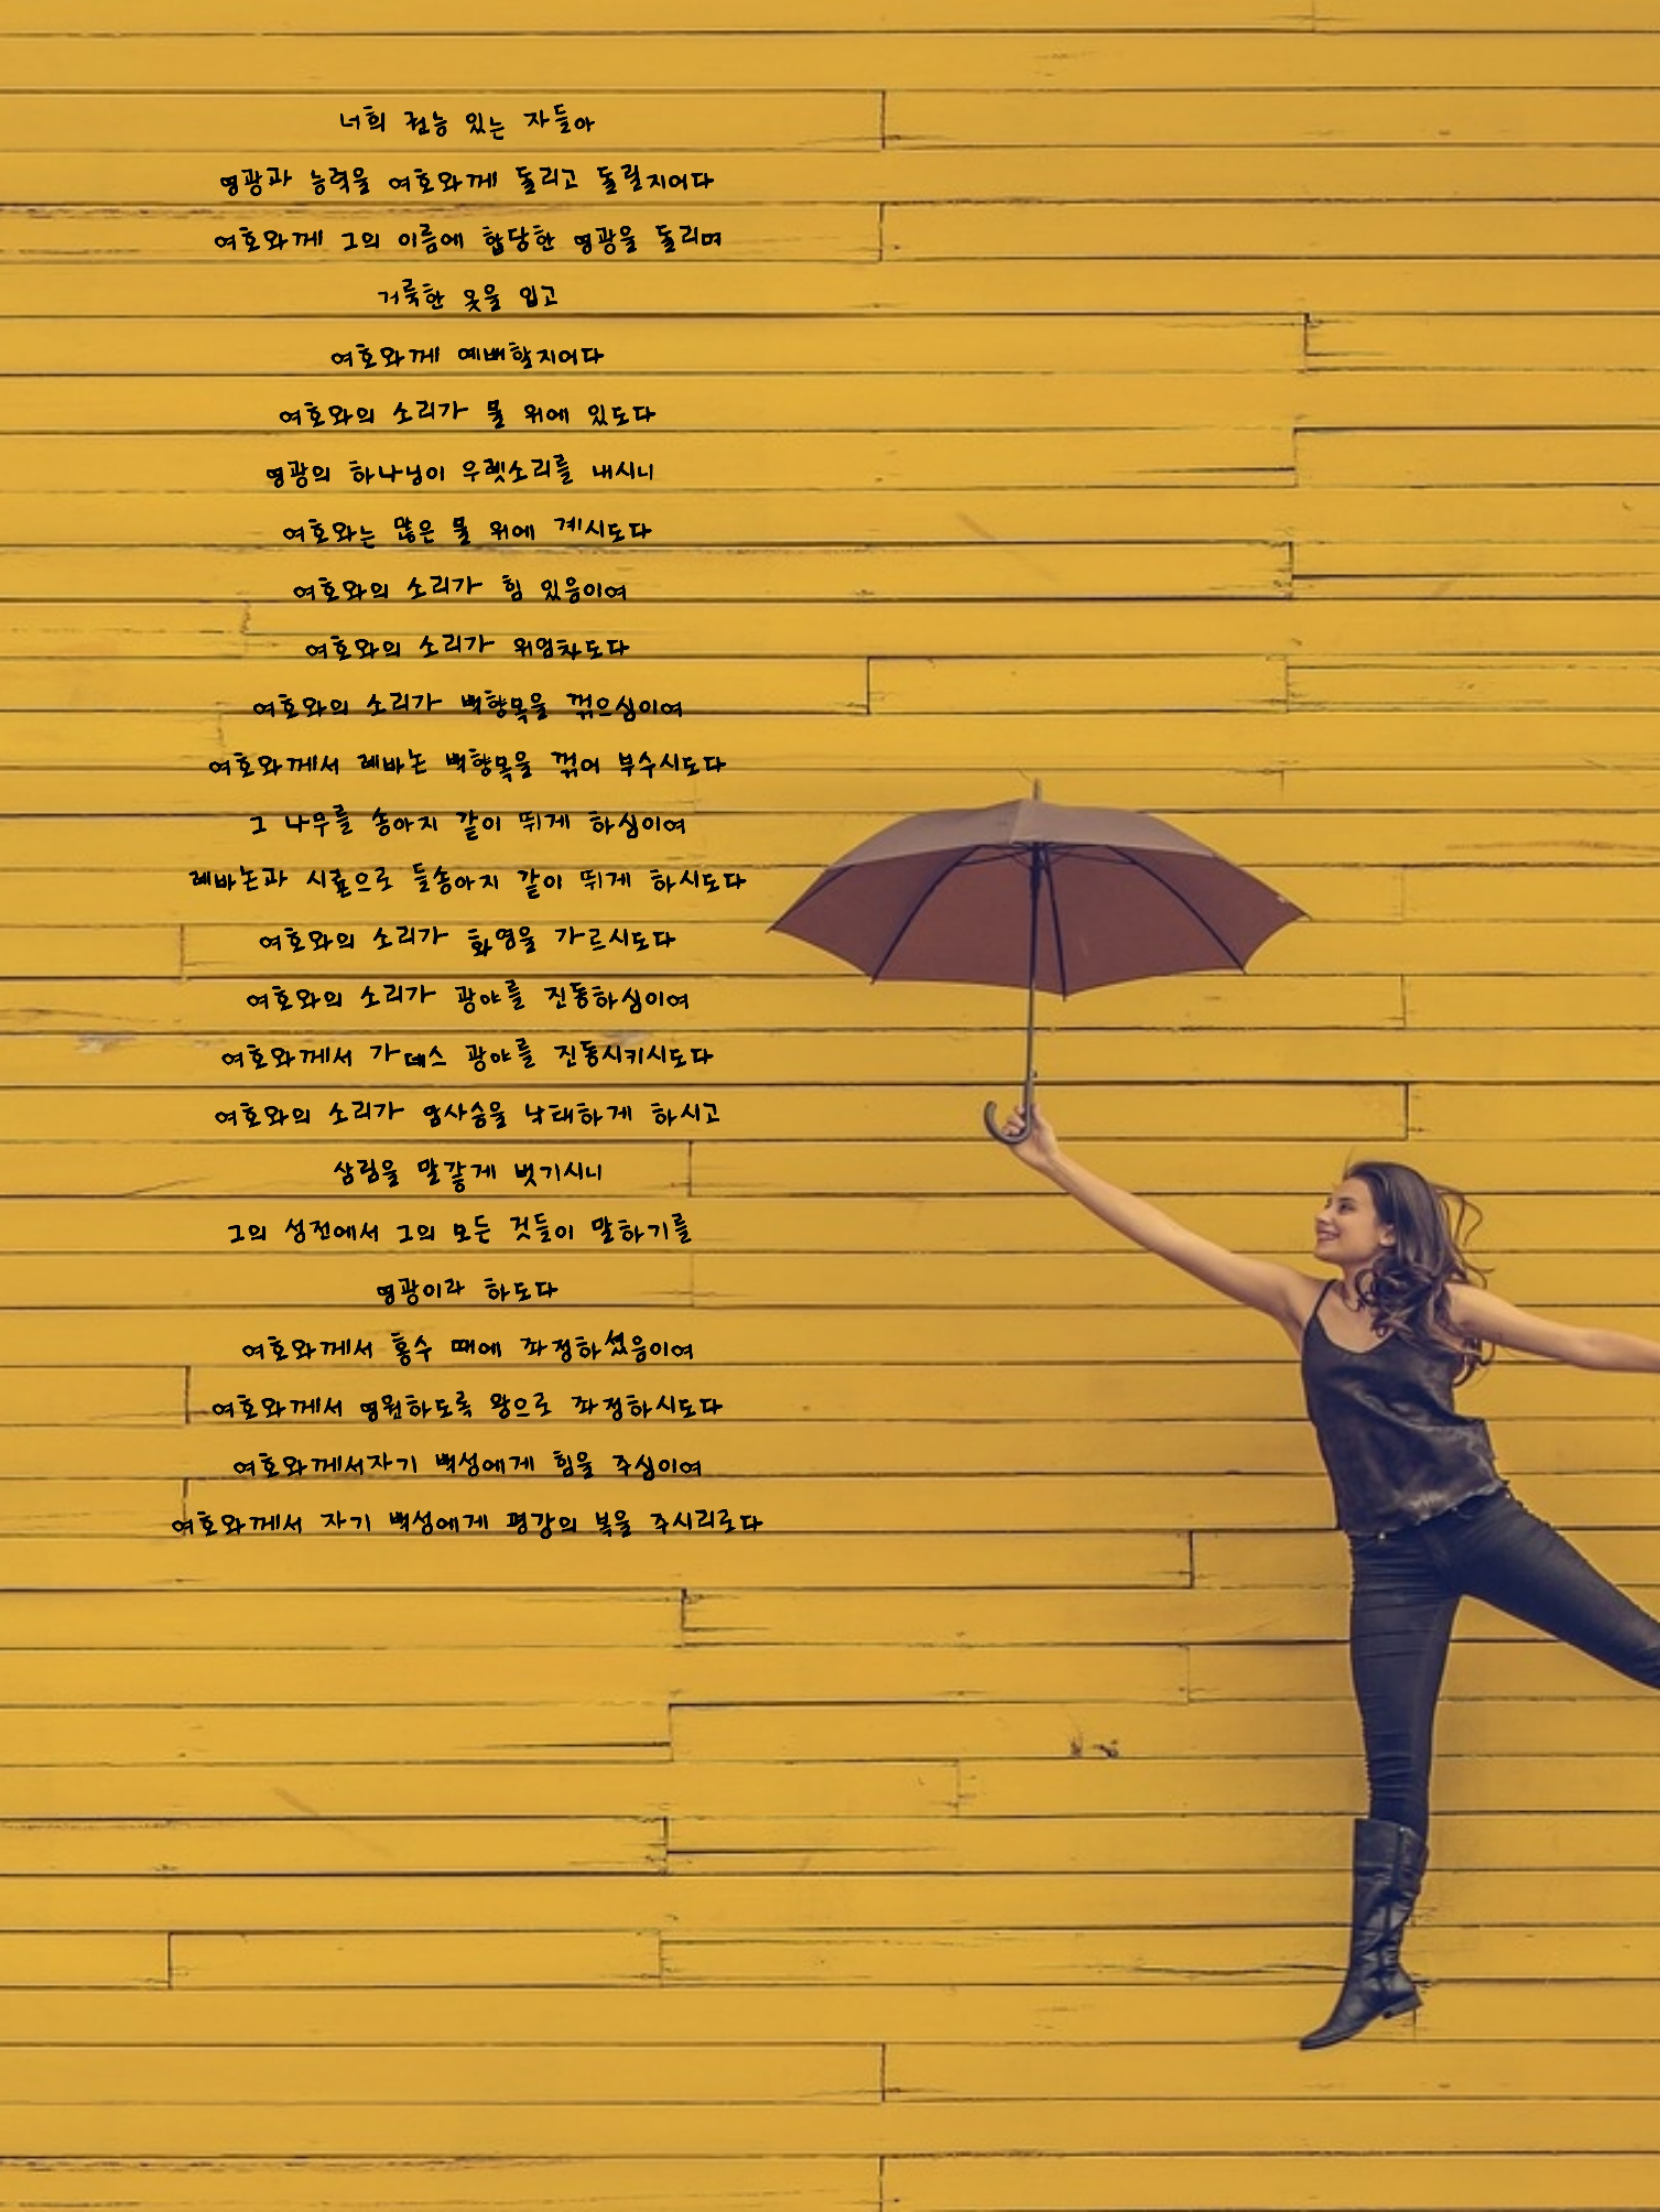 너희 권능 있는 자들아
영광과 능력을 여호와께 돌리고 돌릴지어다
여호와께 그의 이름에 합당한 영광을 돌리며
거룩한 옷을 입고
여호와께 예배할지어다
여호와의 소리가 물 위에 있도다
영광의 하나님이 우렛소리를 내시니
여호와는 많은 물 위에 계시도다
여호와의 소리가 힘 있음이여
여호와의 소리가 위엄차도다
여호와의 소리가 백향목을 꺾으심이여
여호와께서 레바논 백향목을 꺾어 부수시도다
그 나무를 송아지 같이 뛰게 하심이여
레바논과 시룐으로 들송아지 같이 뛰게 하시도다
여호와의 소리가 화염을 가르시도다
여호와의 소리가 광야를 진동하심이여
여호와께서 가데스 광야를 진동시키시도다
여호와의 소리가 암사슴을 낙태하게 하시고
삼림을 말갛게 벗기시니
그의 성전에서 그의 모든 것들이 말하기를
영광이라 하도다
여호와께서 홍수 때에 좌정하셨음이여
여호와께서 영원하도록 왕으로 좌정하시도다
여호와께서자기 백성에게 힘을 주심이여
여호와께서 자기 백성에게 평강의 복을 주시리로다